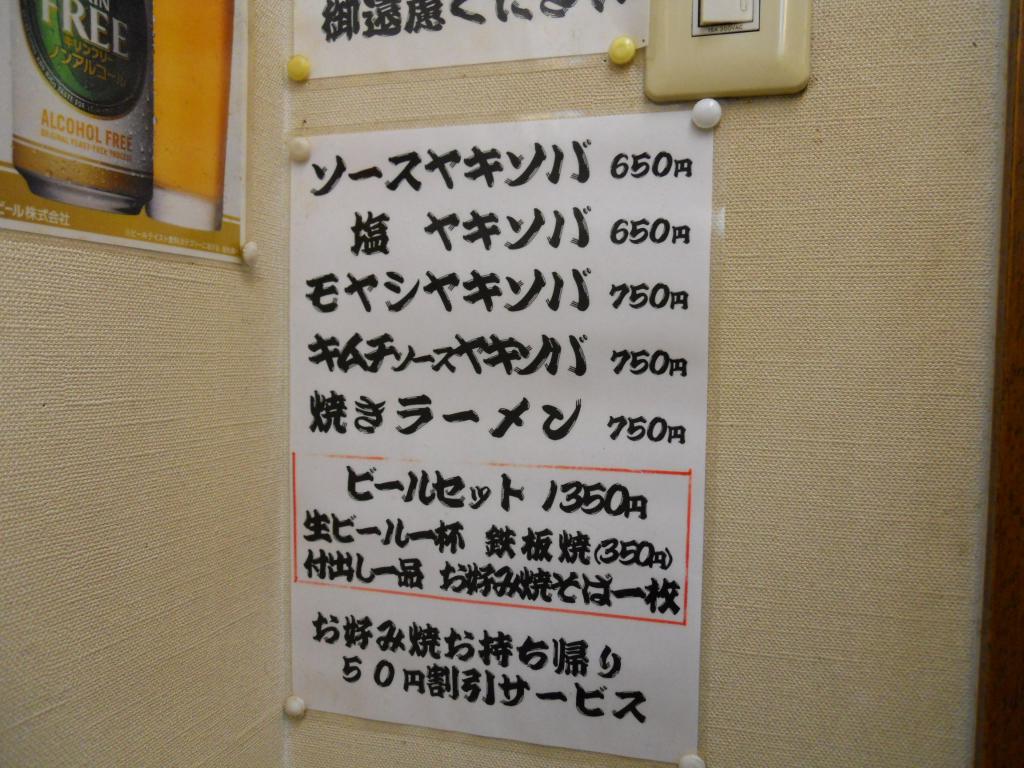 FREE
キリンフリー
ノンアルコール
ALCOHOL FREE
ビール株式会社
御遠慮ください
ソースヤキソバ 650円
塩 ヤキソバ 650円
モヤシヤキソバ 750円
キムチソースヤキソバ 750円
焼きラーメン 750円
ビールセット 1350円
生ビール一杯 鉄板焼(350円)
付出し一品 お好み焼そば一枚
お好み焼お持ち帰り
50円割引サービス